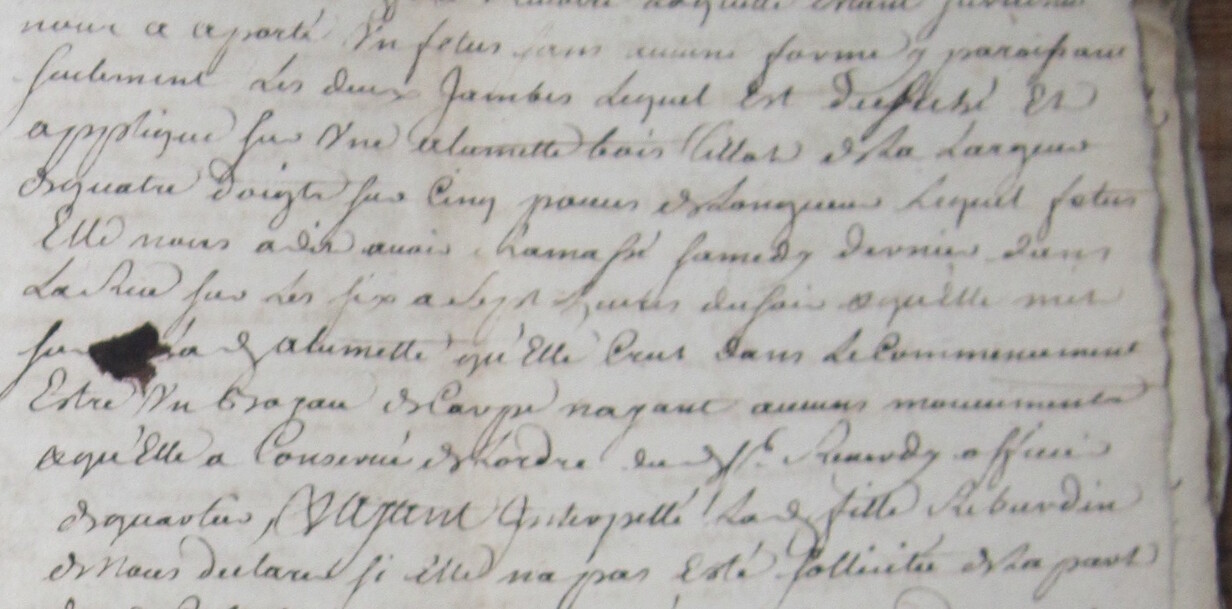 nous a aporté Un fetus sans aucune forme y paroissant
seulement Les deux Jambes Lequel Est desseché Et
appliqué sur Une alumette bois de La Largeur
de quatre doigts sur Cinq pouces de Longueur Lequel fetus
Elle nous a dit avoir Ramassé samedy dernier dans
La Rue sur Les six a Sept heures du soir & qu'Elle mit
sur alumette qu'Elle Crut dans Le Commencement
Estre Un Boyau de Carpe nayant aucuns mouvements
& qu'Elle a Conservé de Lordre du Sr. officier
de quartier, Et Ayant Interpellé Lad. fille Reburdin
de Nous declarer si Elle na pas Esté sollicitée de La part